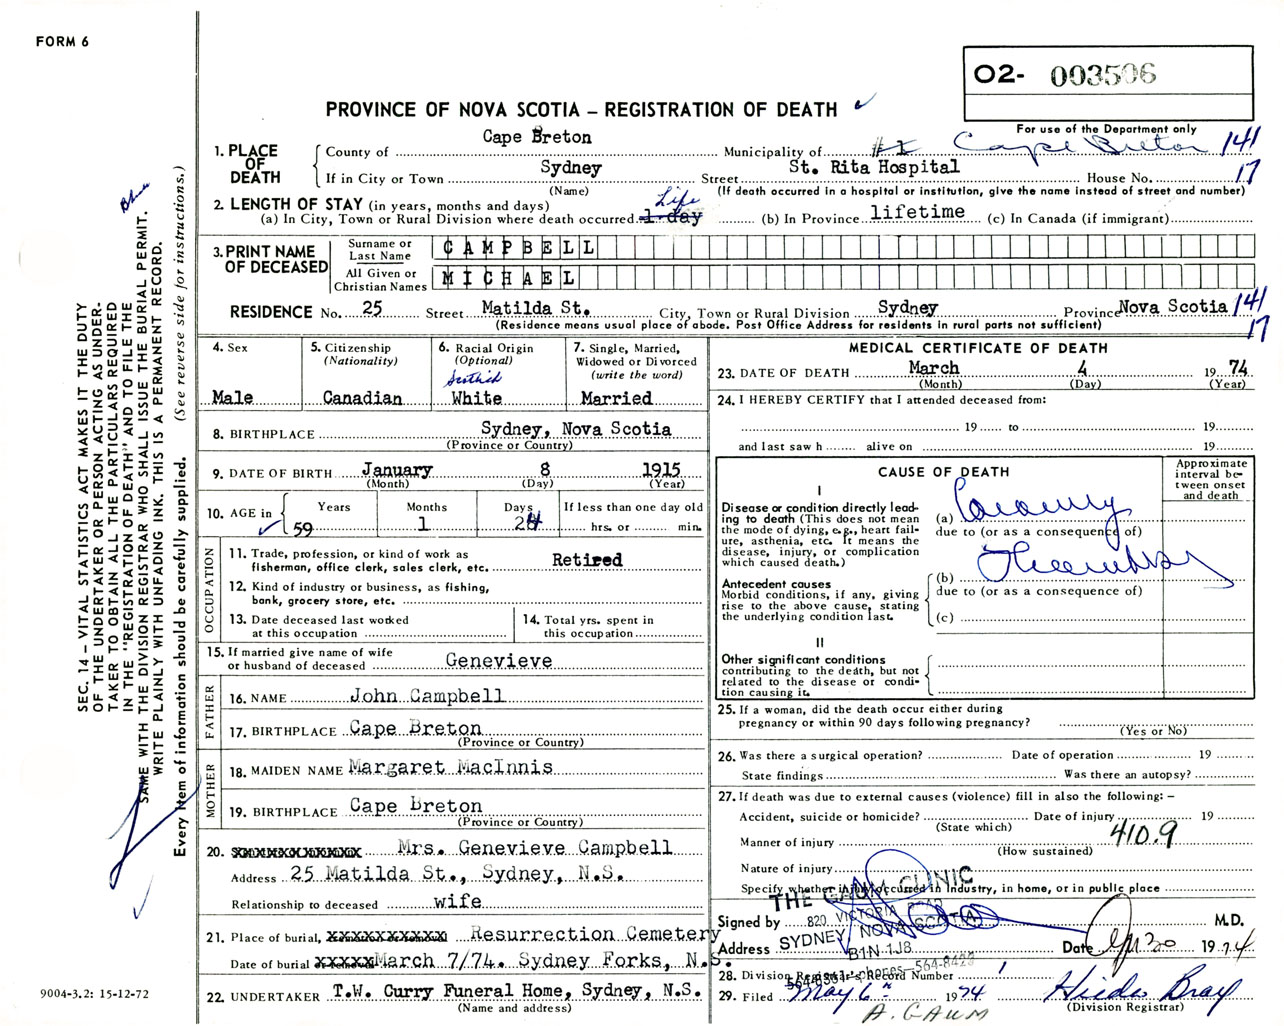 FORM 6
O2- 003506
PROVINCE OF NOVA SCOTIA – REGISTRATION OF DEATH
For use of the Department only
1. PLACE OF DEATH
County of Cape Breton Municipality of #1 Cape Breton 141
If in City or Town Sydney Street St. Rita Hospital House No. 17
(Name) (If death occurred in a hospital or institution, give the name instead of street and number)
2. LENGTH OF STAY (in years, months and days)
(a) In City, Town or Rural Division where death occurred 1 day Life (b) In Province lifetime (c) In Canada (if immigrant)
3. PRINT NAME OF DECEASED
Surname or Last Name CAMPBELL
All Given or Christian Names MICHAEL
RESIDENCE No. 25 Street Matilda St. City, Town or Rural Division Sydney Province Nova Scotia 141
(Residence means usual place of abode. Post Office Address for residents in rural parts not sufficient) 17
4. Sex
Male
5. Citizenship
(Nationality)
Canadian
6. Racial Origin
(Optional)
Scottish
White
7. Single, Married,
Widowed or Divorced
(write the word)
Married
8. BIRTHPLACE Sydney, Nova Scotia
(Province or Country)
9. DATE OF BIRTH January 8 1915
(Month) (Day) (Year)
10. AGE in
Years Months Days If less than one day old
59 1 24 hrs. or min.
OCCUPATION
11. Trade, profession, or kind of work as
fisherman, office clerk, sales clerk, etc. Retired
12. Kind of industry or business, as fishing,
bank, grocery store, etc.
13. Date deceased last worked
at this occupation
14. Total yrs. spent in
this occupation
15. If married give name of wife
or husband of deceased Genevieve
FATHER
16. NAME John Campbell
17. BIRTHPLACE Cape Breton
(Province or Country)
MOTHER
18. MAIDEN NAME Margaret MacInnis
19. BIRTHPLACE Cape Breton
(Province or Country)
20. xxxxxxxxxxxx Mrs. Genevieve Campbell
Address 25 Matilda St., Sydney, N.S.
Relationship to deceased wife
21. Place of burial, xxxxxxxxxx Resurrection Cemetery
Date of burial xxxxx March 7/74. Sydney Forks, N.S.
22. UNDERTAKER T.W. Curry Funeral Home, Sydney, N.S.
(Name and address)
MEDICAL CERTIFICATE OF DEATH
23. DATE OF DEATH March 4 1974
(Month) (Day) (Year)
24. I HEREBY CERTIFY that I attended deceased from:
19 to 19
and last saw h alive on 19
CAUSE OF DEATH
Approximate interval between onset and death
I
Disease or condition directly leading to death (This does not mean the mode of dying, e.g., heart failure, asthenia, etc. It means the disease, injury, or complication which caused death.)
(a) Coronary
due to (or as a consequence of)
Antecedent causes
Morbid conditions, if any, giving rise to the above cause, stating the underlying condition last.
(b) Thrombosis
due to (or as a consequence of)
(c)
II
Other significant conditions
contributing to the death, but not related to the disease or condition causing it.
25. If a woman, did the death occur either during
pregnancy or within 90 days following pregnancy?
(Yes or No)
26. Was there a surgical operation? Date of operation 19
State findings Was there an autopsy?
27. If death was due to external causes (violence) fill in also the following: –
Accident, suicide or homicide? Date of injury 19
(State which)
Manner of injury 410.9
(How sustained)
Nature of injury
Specify whether injury occurred in Industry, in home, or in public place
THE GAUM CLINIC
820 VICTORIA ROAD
SYDNEY, NOVA SCOTIA
B1N 1J8
Signed by M.D.
Address Date Apr 20 1974
28. Division Registrar's Record Number 1
29. Filed May 6th 1974 Hilda Bray
(Division Registrar)
A. GAUM
SEC. 14 – VITAL STATISTICS ACT MAKES IT THE DUTY
OF THE UNDERTAKER OR PERSON ACTING AS UNDER-
TAKER TO OBTAIN ALL THE PARTICULARS REQUIRED
IN THE "REGISTRATION OF DEATH" AND TO FILE THE
SAME WITH THE DIVISION REGISTRAR WHO SHALL ISSUE THE BURIAL PERMIT.
WRITE PLAINLY WITH UNFADING INK. THIS IS A PERMANENT RECORD.
Every item of information should be carefully supplied. (See reverse side for instructions.)
9004-3.2: 15-12-72